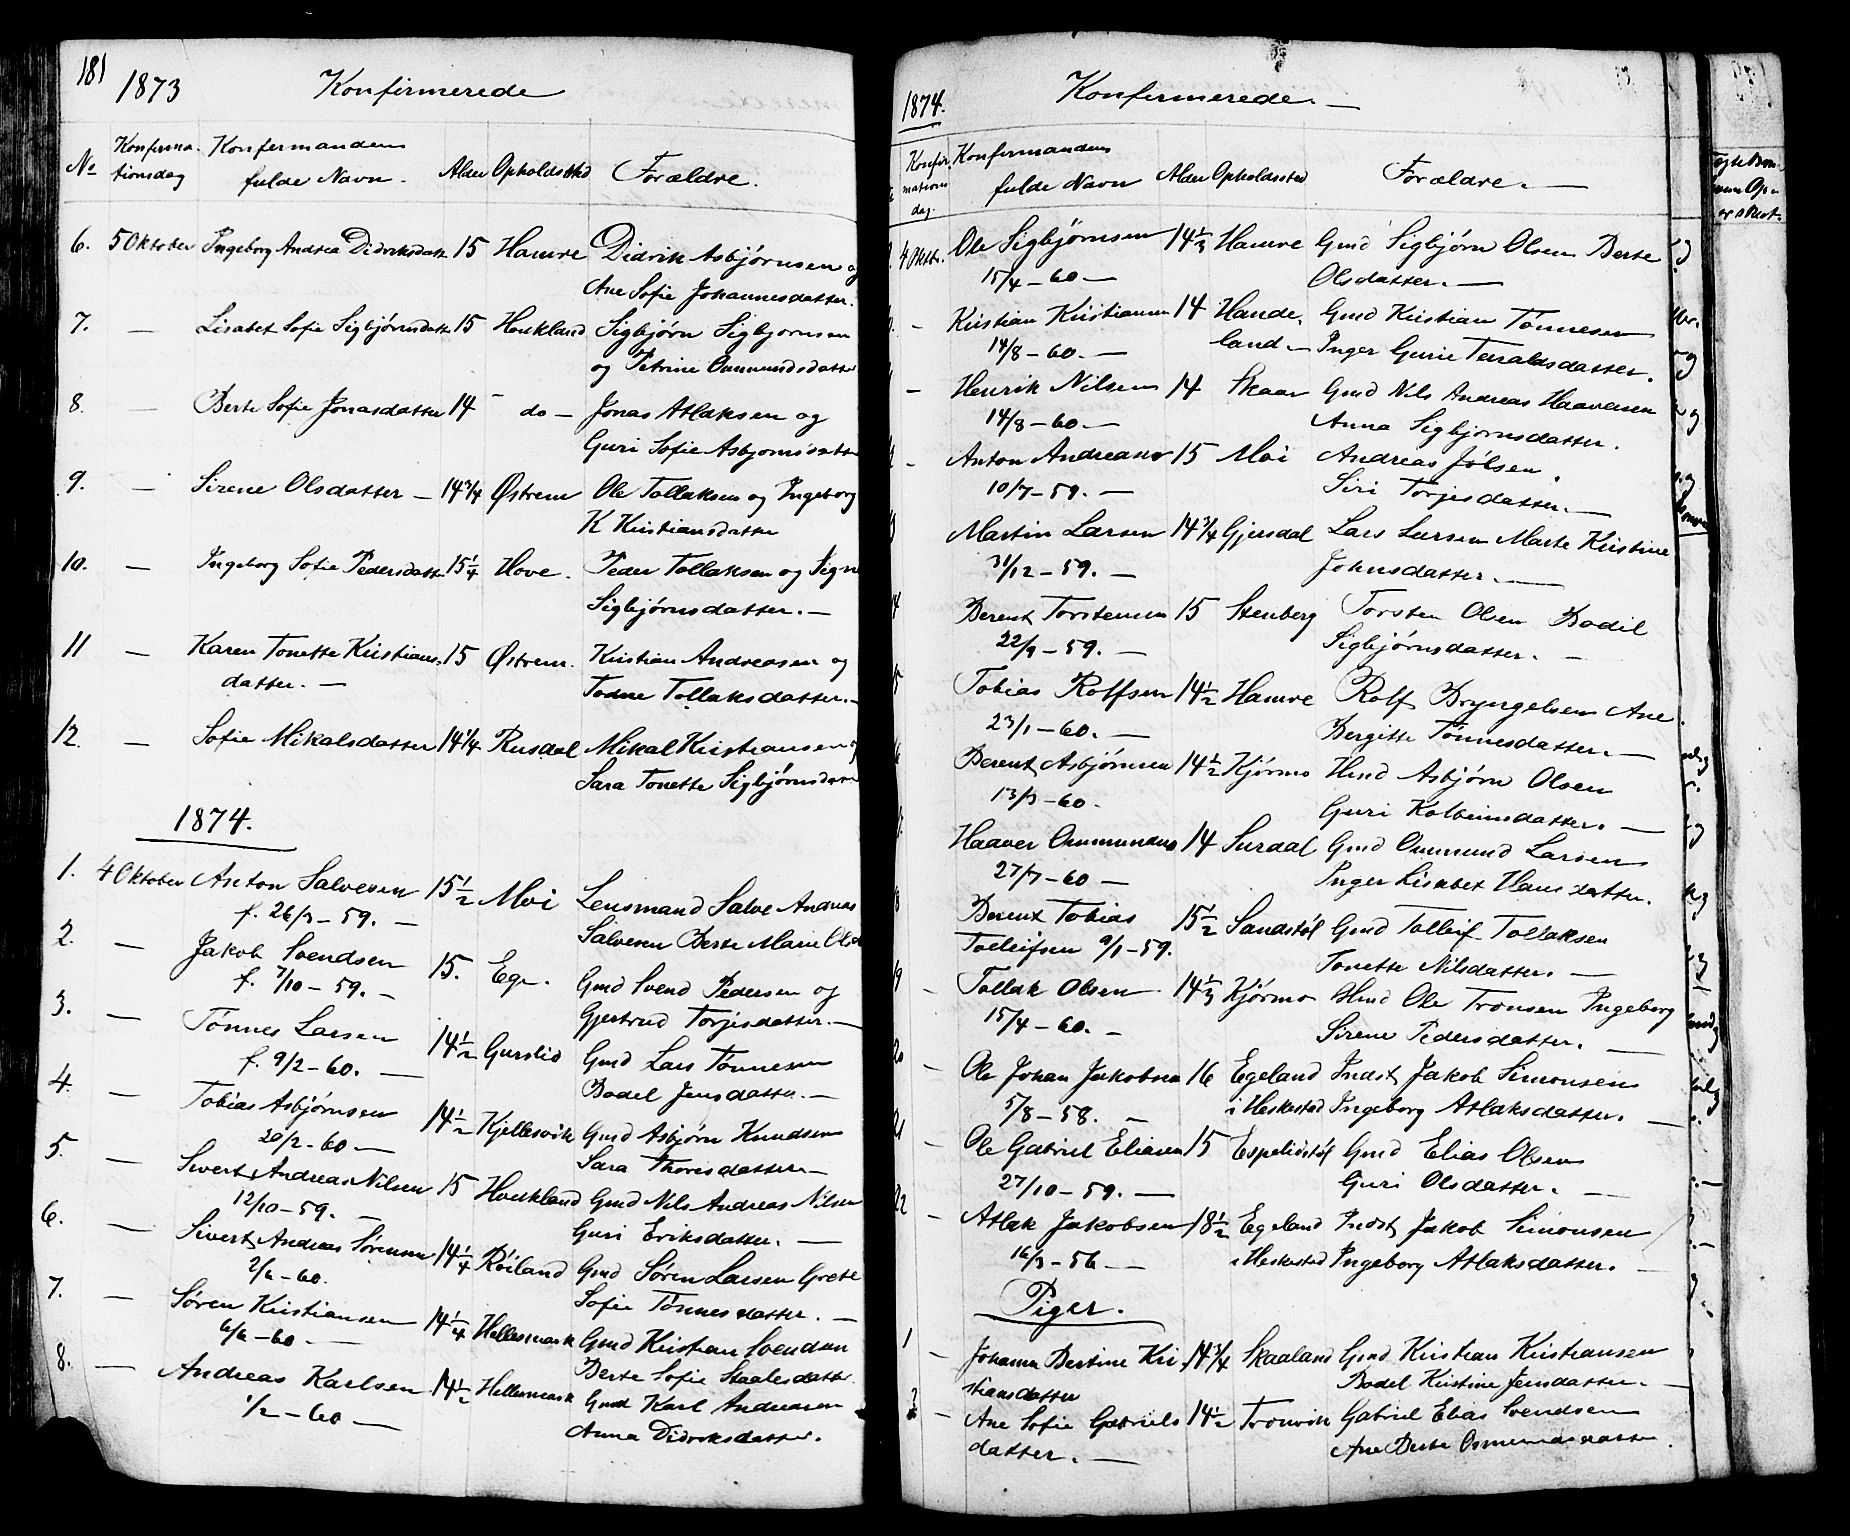 181
1873 Konfirmerede
No Konfirma- tionsdag Konfirmandens fulde Navn. Alder Opholdssted Forældre.
6. 5 Oktober Ingeborg Andrea Didriksdatt 15 Hamre Didrik Asbjørnsen og
Ane Sofie Johannesdatter.
7. — Lisabet Sofie Sigbjørnsdatt 15 Houkland Sigbjørn Sigbjornsen
og Petrine Ommundsdatter
8. — Berte Sofie Jonasdatter 14 — do — Jonas Atlaksen og
Guri Sofie Asbjornsdatter
9. — Sirene Olsdatter — 14 3/4 Østrem Ole Tollaksen og Ingeborg
K Kristiansdatter
10. — Ingeborg Sofie Pedersdatt 15 1/4 Hove. Peder Tollaksen og Signe
Sigbjørnsdatter. —
11 — Karen Tonette Kristians- 15 Østrem. Kristian Andreasen og
datter. — Todne Tollaksdatter. —
12. — Sofie Mikalsdatter 14 1/4 Rusdal Mikal Kristiansen og
Sara Tonette Sigbjørnsdatter
1874.
1. 4 Oktober Anton Salvesen 15 1/2 Moi Lensmand Salve Andreas
f. 26/3 - 59. — Salvesen Berte Marie Olsd
2. — Jakob Svendsen 15. Ege. Gmd Svend Pedersen og
f. 7/10 - 59. — Gjertrud Torjesdatter. —
3. — Tönnes Larsen 14 1/2 Gurslid Gmd Lars Tönnesen
f. 9/2 - 60. — Bodel Jensdatter. —
4. — Tobias Asbjørnsen 14 1/2 Kjellesvik Gmd Asbjørn Knudsen
20/2 - 60 — Sara Thoresdatter —
5. — Sivert Andreas Nilsen 15 Houkland Gmd Nils Andreas Nilsen
12/10 - 59. — Guri Eriksdatter. —
6. — Sivert Andreas Sørensen 14 1/4 Röiland Gmd Søren Larsen Grete
2/6 - 60. Sofie Tönnesdatter. —
7. — Søren Kristiansen 14 1/4 Hellesmark Gmd Kristian Svendsen
6/6 - 60 — Berte Sofie Staalesdatter
8. — Andreas Karlsen 14 1/2 Hellesmark Gmd Karl Andreasen
1/2 - 60 — Anna Didriksdatter.
1874. Konfirmerede. —
Konfir- mations dag. Konfirmandens fulde Navn Alder Opholdssted Forældre. —
4 Oktbr. Ole Sigbjørnsen 14 1/3 Hamre Gmd Sigbjørn Olsen Berte
15/4 - 60 — Olsdatter. —
— Kristian Kristiansen 14 Haude- Gmd Kristian Tönnesen
14/8 - 60. — land — Inger Gurie Taraldsdatter.
— Henrik Nilsen 14 Skaar Gmd Nils Andreas Haaversen
14/8 - 60 — Anna Sigbjornsdatter.
— Anton Andreasen 15 Moi Andreas Jölsen
10/7 - 59. — Siri Torjesdatter. —
Martin Larsen 14 3/4 Gjersdal Lars Larsen Marte Kristine
31/12 - 59. — Johnsdatter. —
Berent Torstensen 15 Stenberg Torsten Olsen Bodil
22/9 - 59. — Sigbjørnsdatter. —
Tobias Rolfsen 14 1/2 Hamre Rolf Bryngelsen Ane
23/1 - 60. — Bergitte Tönnesdatter. —
Berent Asbjörnsen 14 1/2 Kjörmo Hmd Asbjörn Olsen
13/3 - 60. Guri Kolbeinsdatter. —
Haaver Ommundsen 14 Surdal Gmd Ommund Larsen
27/7 - 60 — Inger Lisabet Hansdatter.
Berent Tobias 15 1/2 Sandstöl Gmd Tolleif Tollaksen
Tolleifsen 9/1 - 59. Tonette Nilsdatter. —
19 — Tollak Olsen 14 1/3 Kjörmo Hmd Ole Tronsen Ingeborg
15/4 - 60. — Sirene Pedersdatter. —
20 — Ole Johan Jakobsen 16 Egeland Indst Jakob Simonsen
5/8 - 58. — i Heskestad Ingeborg Atlaksdatter. —
21 — Ole Gabriel Eliasen 15 Espelidstöl Gmd Elias Olsen
27/10 - 59. — Guri Olsdatter. —
22 — Atlak Jakobsen 18 1/2 Egeland Indst Jakob Simonsen
16/3 - 56 — i Heskestad Ingeborg Atlaksdatter. —
Piger.
1 — Johanna Bertine Kri- 14 3/4 Skaaland Gmd Kristian Kristiansen
stiansdatter Bodel Kirstine Jensdatter. —
2 — Ane Sofie Gabriels 14 1/2 Tronvik Gabriel Elias Svendsen
datter. — Ane Berte Osmundsdatter.